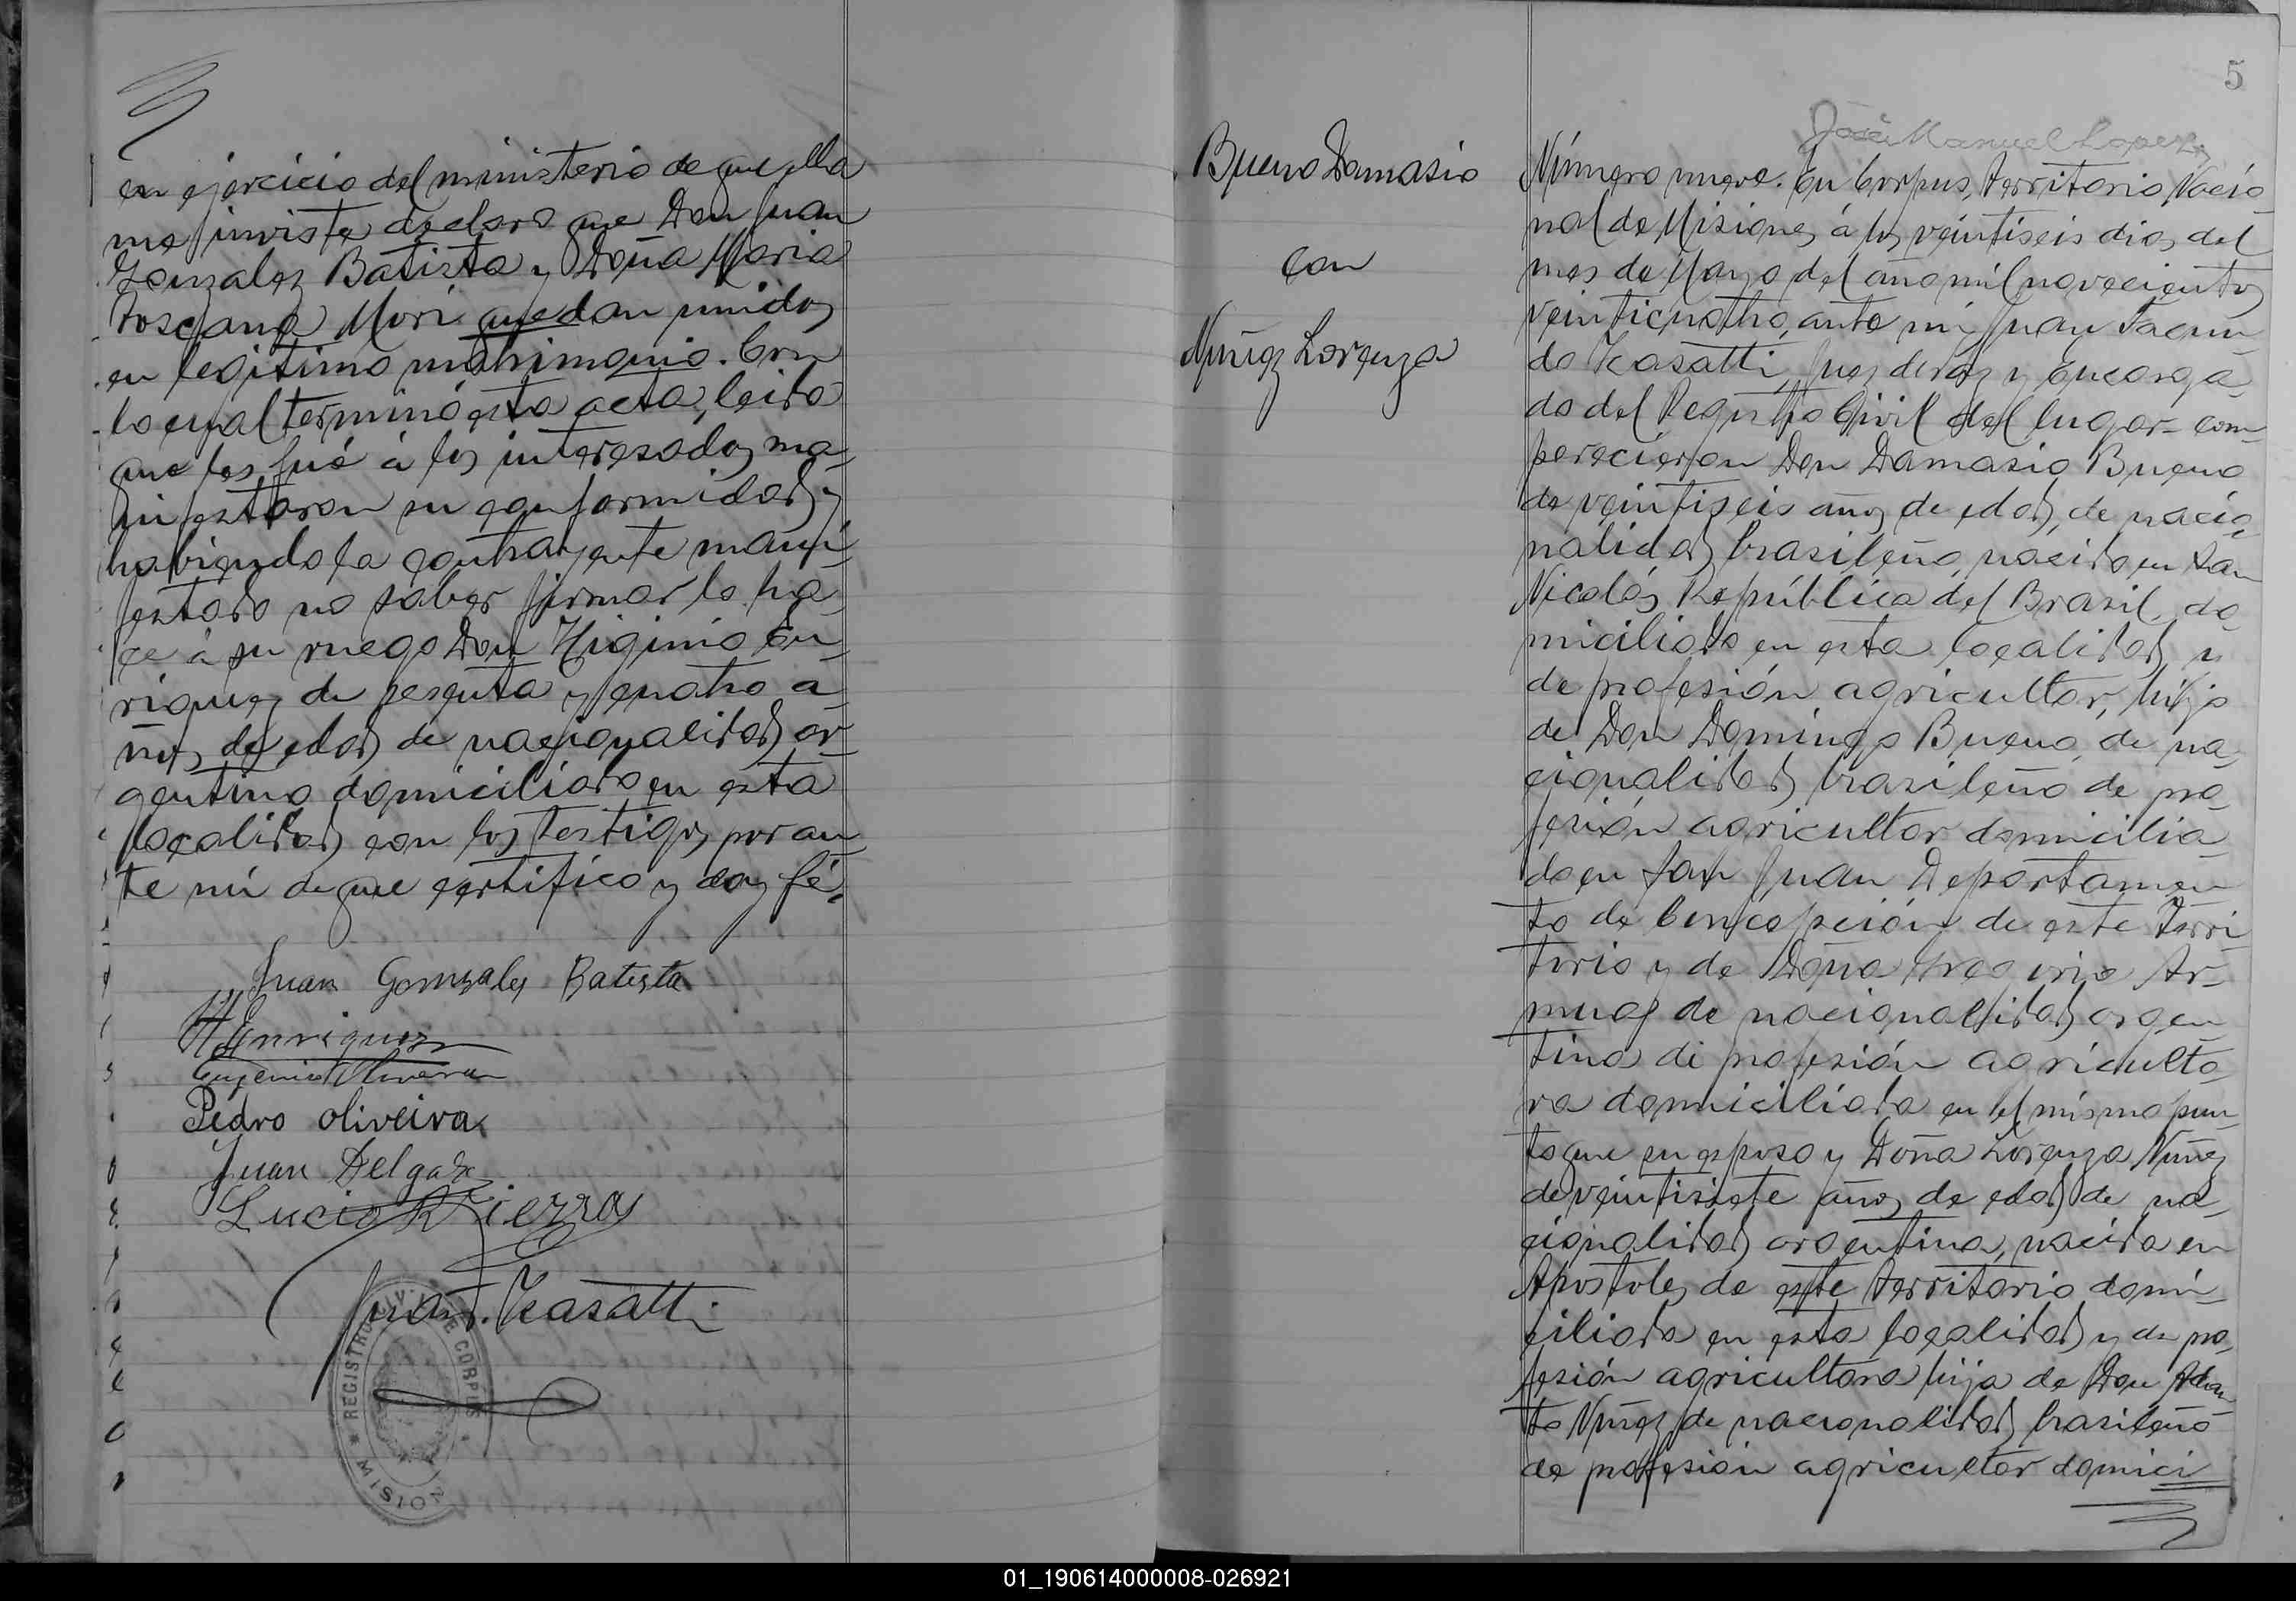 en ejercicio del ministerio de que ella
me inviste declaro que Don Juan
Gonzalez Batista y Doña Maria
Toscana Mori quedan unidos
en legitimo matrimonio. Con
lo cual terminó ésta acta, leida
que les fué á los interesados ma-
nifestaron su conformidad y
habiendo la contrayente mani-
festado no saber firmar lo ha-
ce á su ruego Don Higinio En-
riquez de sesenta y cuatro a-
ños de edad de nacionalidad ar-
gentino domiciliado en esta
localidad con los testigos por an-
te mi de que certifico y doy fé.
Juan Gonzalez Batista
H Enriquez
Eugenio Olivera
Pedro Oliveira
Juan Delgado
Lucio Sierra
Juan F. Casatti
REGISTRO CIVIL DE CORPUS
MISIONES
5
José Manuel Lopez
Bueno Damasio
con
Nuñez Lorenza
Número nueve. En Corpus, Territorio Nacio-
nal de Misiones á los veintiseis dias del
mes de Mayo del año mil novecientos
veinticuatro, ante mi Juan Facun-
do Casatti Juez de Paz y encarga-
do del Registro Civil del lugar- com-
perecieron Don Damasio Bueno
de veintiseis años de edad, de nacio-
nalidad brasileño, nacido en San
Nicolás República del Brasil, do-
miciliado en esta localidad y
de profesión agricultor, hijo
de Don Domingo Bueno, de na-
cionalidad brasileño de pro-
fesión agricultor domicilia-
do en San Juan Departamen-
to de Concepción de este Terri-
torio y de Doña Gregoria Ar-
mua de nacionalidad argen-
tina de profesión agriculto-
ra domiciliada en el mismo pun-
to que su esposo y Doña Lorenza Nuñez
de veintisiete años de edad de na-
cionalidad argentina, nacida en
Apostoles de este Territorio domi-
ciliada en esta localidad y de pro-
fesión agricultora hija de Don
Nuñez de nacionalidad brasileño
de profesión agricultor domici
01_190614000008-026921